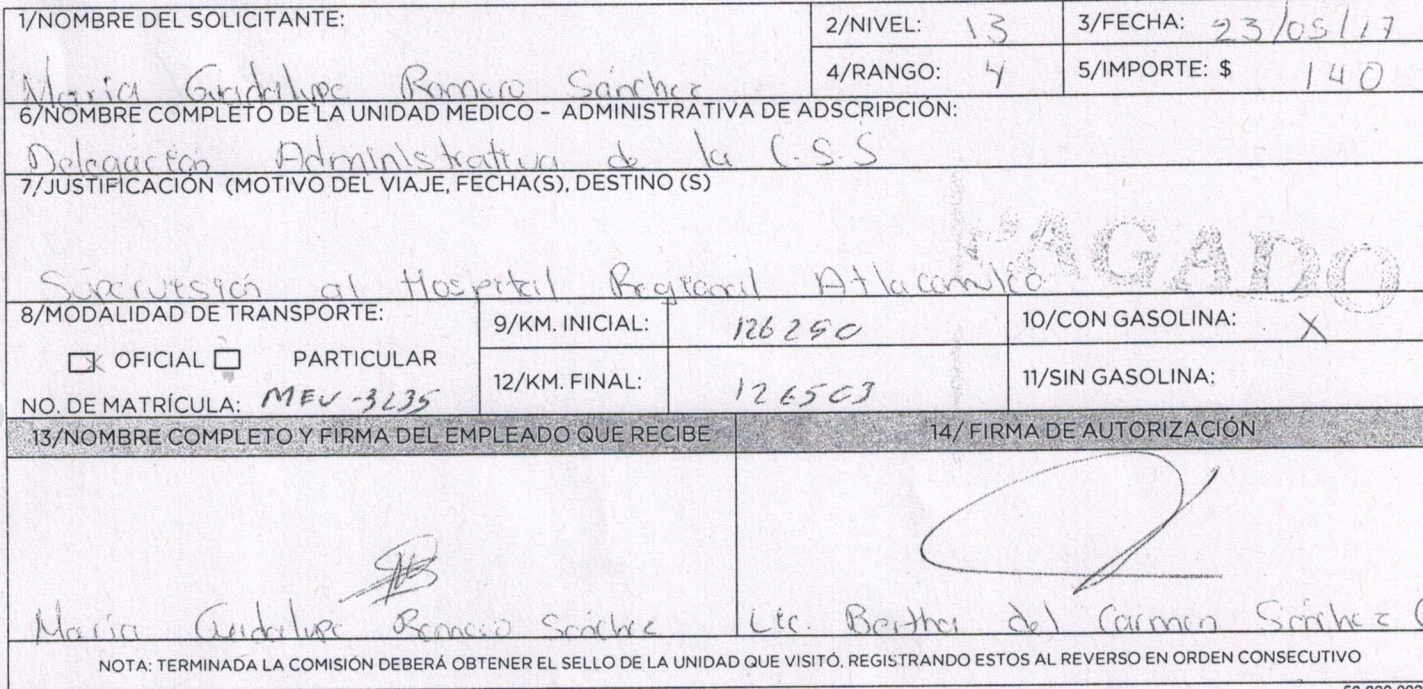 1/NOMBRE DEL SOLICITANTE:
María Guadalupe Romero Sánchez
2/NIVEL: 13
3/FECHA: 23/05/17
4/RANGO: 4
5/IMPORTE: $ 140
6/NOMBRE COMPLETO DE LA UNIDAD MEDICO - ADMINISTRATIVA DE ADSCRIPCIÓN:
Delegación Administrativa de la C.S.S
7/JUSTIFICACIÓN (MOTIVO DEL VIAJE, FECHA(S), DESTINO (S)
PAGADO
Supervisión al Hospital Regional Atlacomulco
8/MODALIDAD DE TRANSPORTE:
X OFICIAL PARTICULAR
NO. DE MATRÍCULA: MEV-3235
9/KM. INICIAL: 126290
10/CON GASOLINA: X
12/KM. FINAL: 126503
11/SIN GASOLINA:
13/NOMBRE COMPLETO Y FIRMA DEL EMPLEADO QUE RECIBE
14/ FIRMA DE AUTORIZACIÓN
María Guadalupe Romero Sánchez
Lic. Bertha del Carmen Sánchez
NOTA: TERMINADA LA COMISIÓN DEBERÁ OBTENER EL SELLO DE LA UNIDAD QUE VISITÓ, REGISTRANDO ESTOS AL REVERSO EN ORDEN CONSECUTIVO